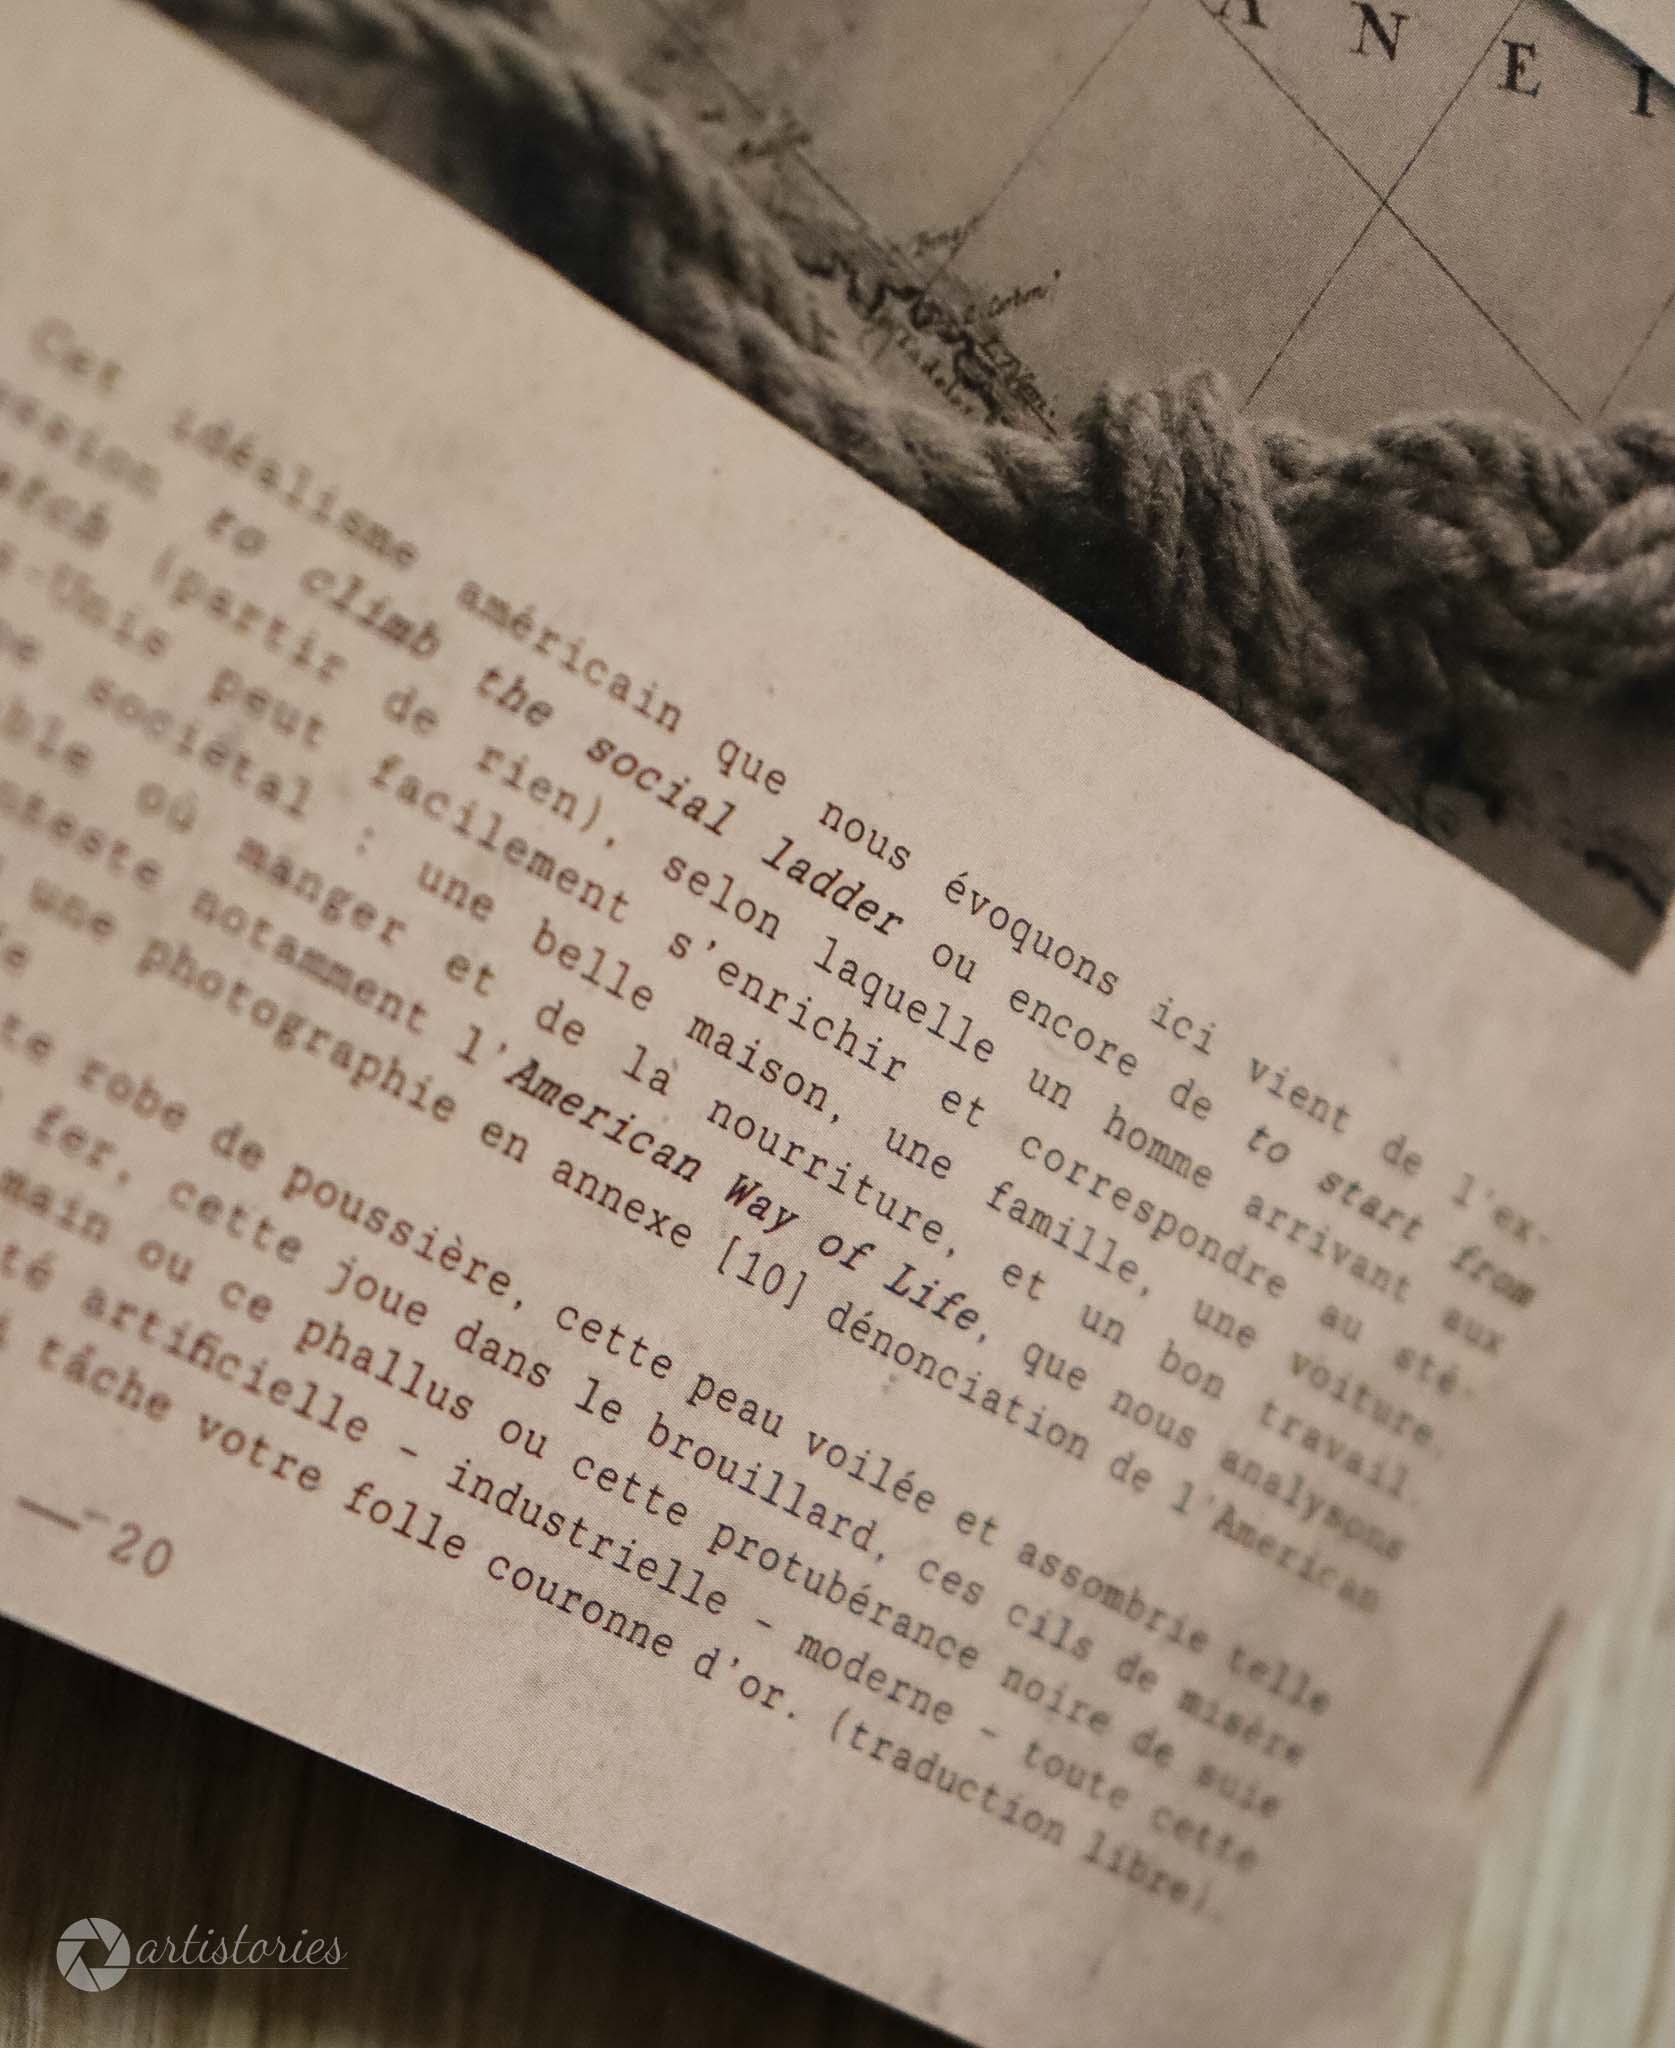 ANEI
Cet idéalisme américain que nous évoquons ici vient de l'ex-
ression to climb the social ladder ou encore de to start from
(partir de rien), selon laquelle un homme arrivant aux
-Unis peut facilement s'enrichir et correspondre au sté-
sociétal : une belle maison, une famille, une voiture,
ble où manger et de la nourriture, et un bon travail.
nteste notamment l'American Way of Life, que nous analysons
une photographie en annexe [10] dénonciation de l'American
te robe de poussière, cette peau voilée et assombrie telle
fer, cette joue dans le brouillard, ces cils de misère
main ou ce phallus ou cette protubérance noire de suie
té artificielle - industrielle - moderne - toute cette
tâche votre folle couronne d'or. (traduction libre).
20
artistories